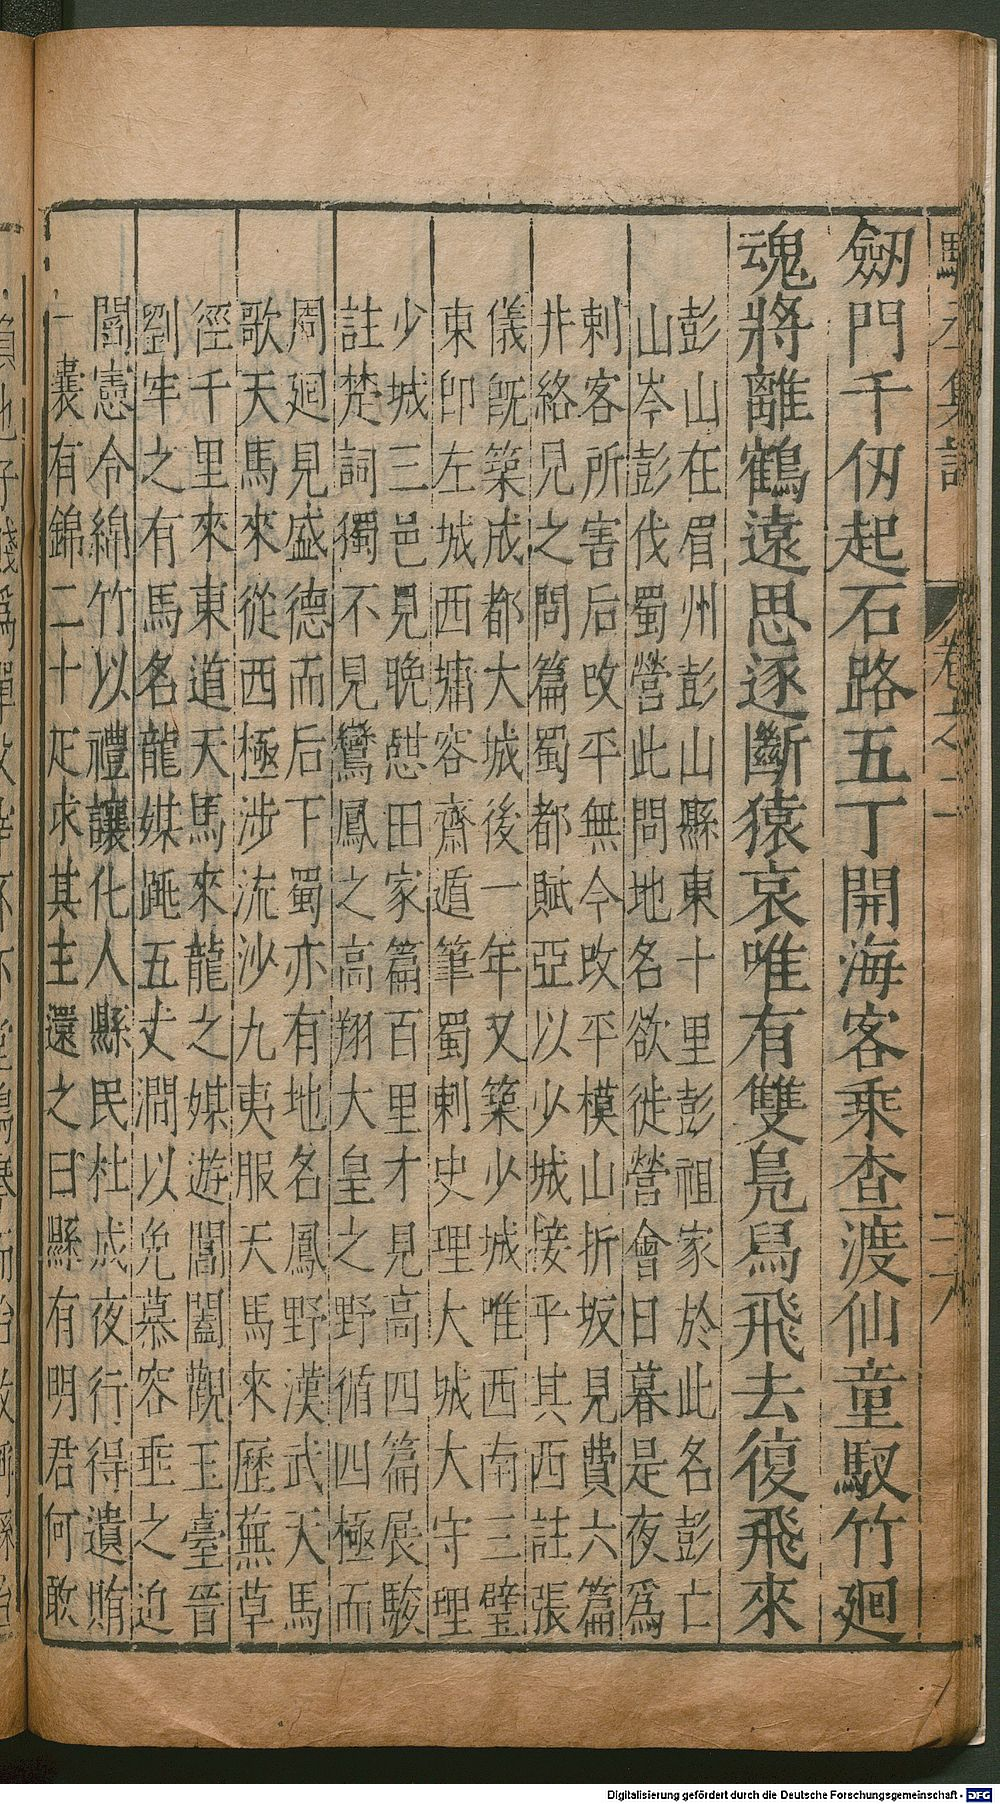 劒門千仞起石路五丁開海客乘查渡仙童馭竹廻
魂將離鶴遠思逐斷猿哀唯有雙鳧舄飛去復飛來
彭山在眉州彭山縣東十里彭祖家於此名彭亡
山岑彭伐蜀營此問地名欲徙營會日暮是夜爲
刺客所害后改平無今改平模山折坂見費六篇
井絡見之問篇蜀都賦亞以少城接乎其西註張
儀旣築成都大城後一年又築少城唯西南三壁
東卽左城西墉容齋遁筆蜀剌史理大城大守理
少城三邑見晚憇田家篇百里才見高四篇展駿
註楚詞獨不見鸞鳳之高翔大皇之野循四極而
周廻見盛德而后下蜀亦有地名鳳野漢武天馬
歌天馬來從西極涉流沙九夷服天馬來歷蕪草
徑千里來東道天馬來龍之媒遊閶闔觀玉臺晉
劉牢之有馬名龍媒跳五丈澗以免慕容垂之迫
閻憲令綿竹以禮讓化人縣民杜成夜行得遺賄
一囊有錦二十疋求其主還之曰縣有明君何敢
卷之二